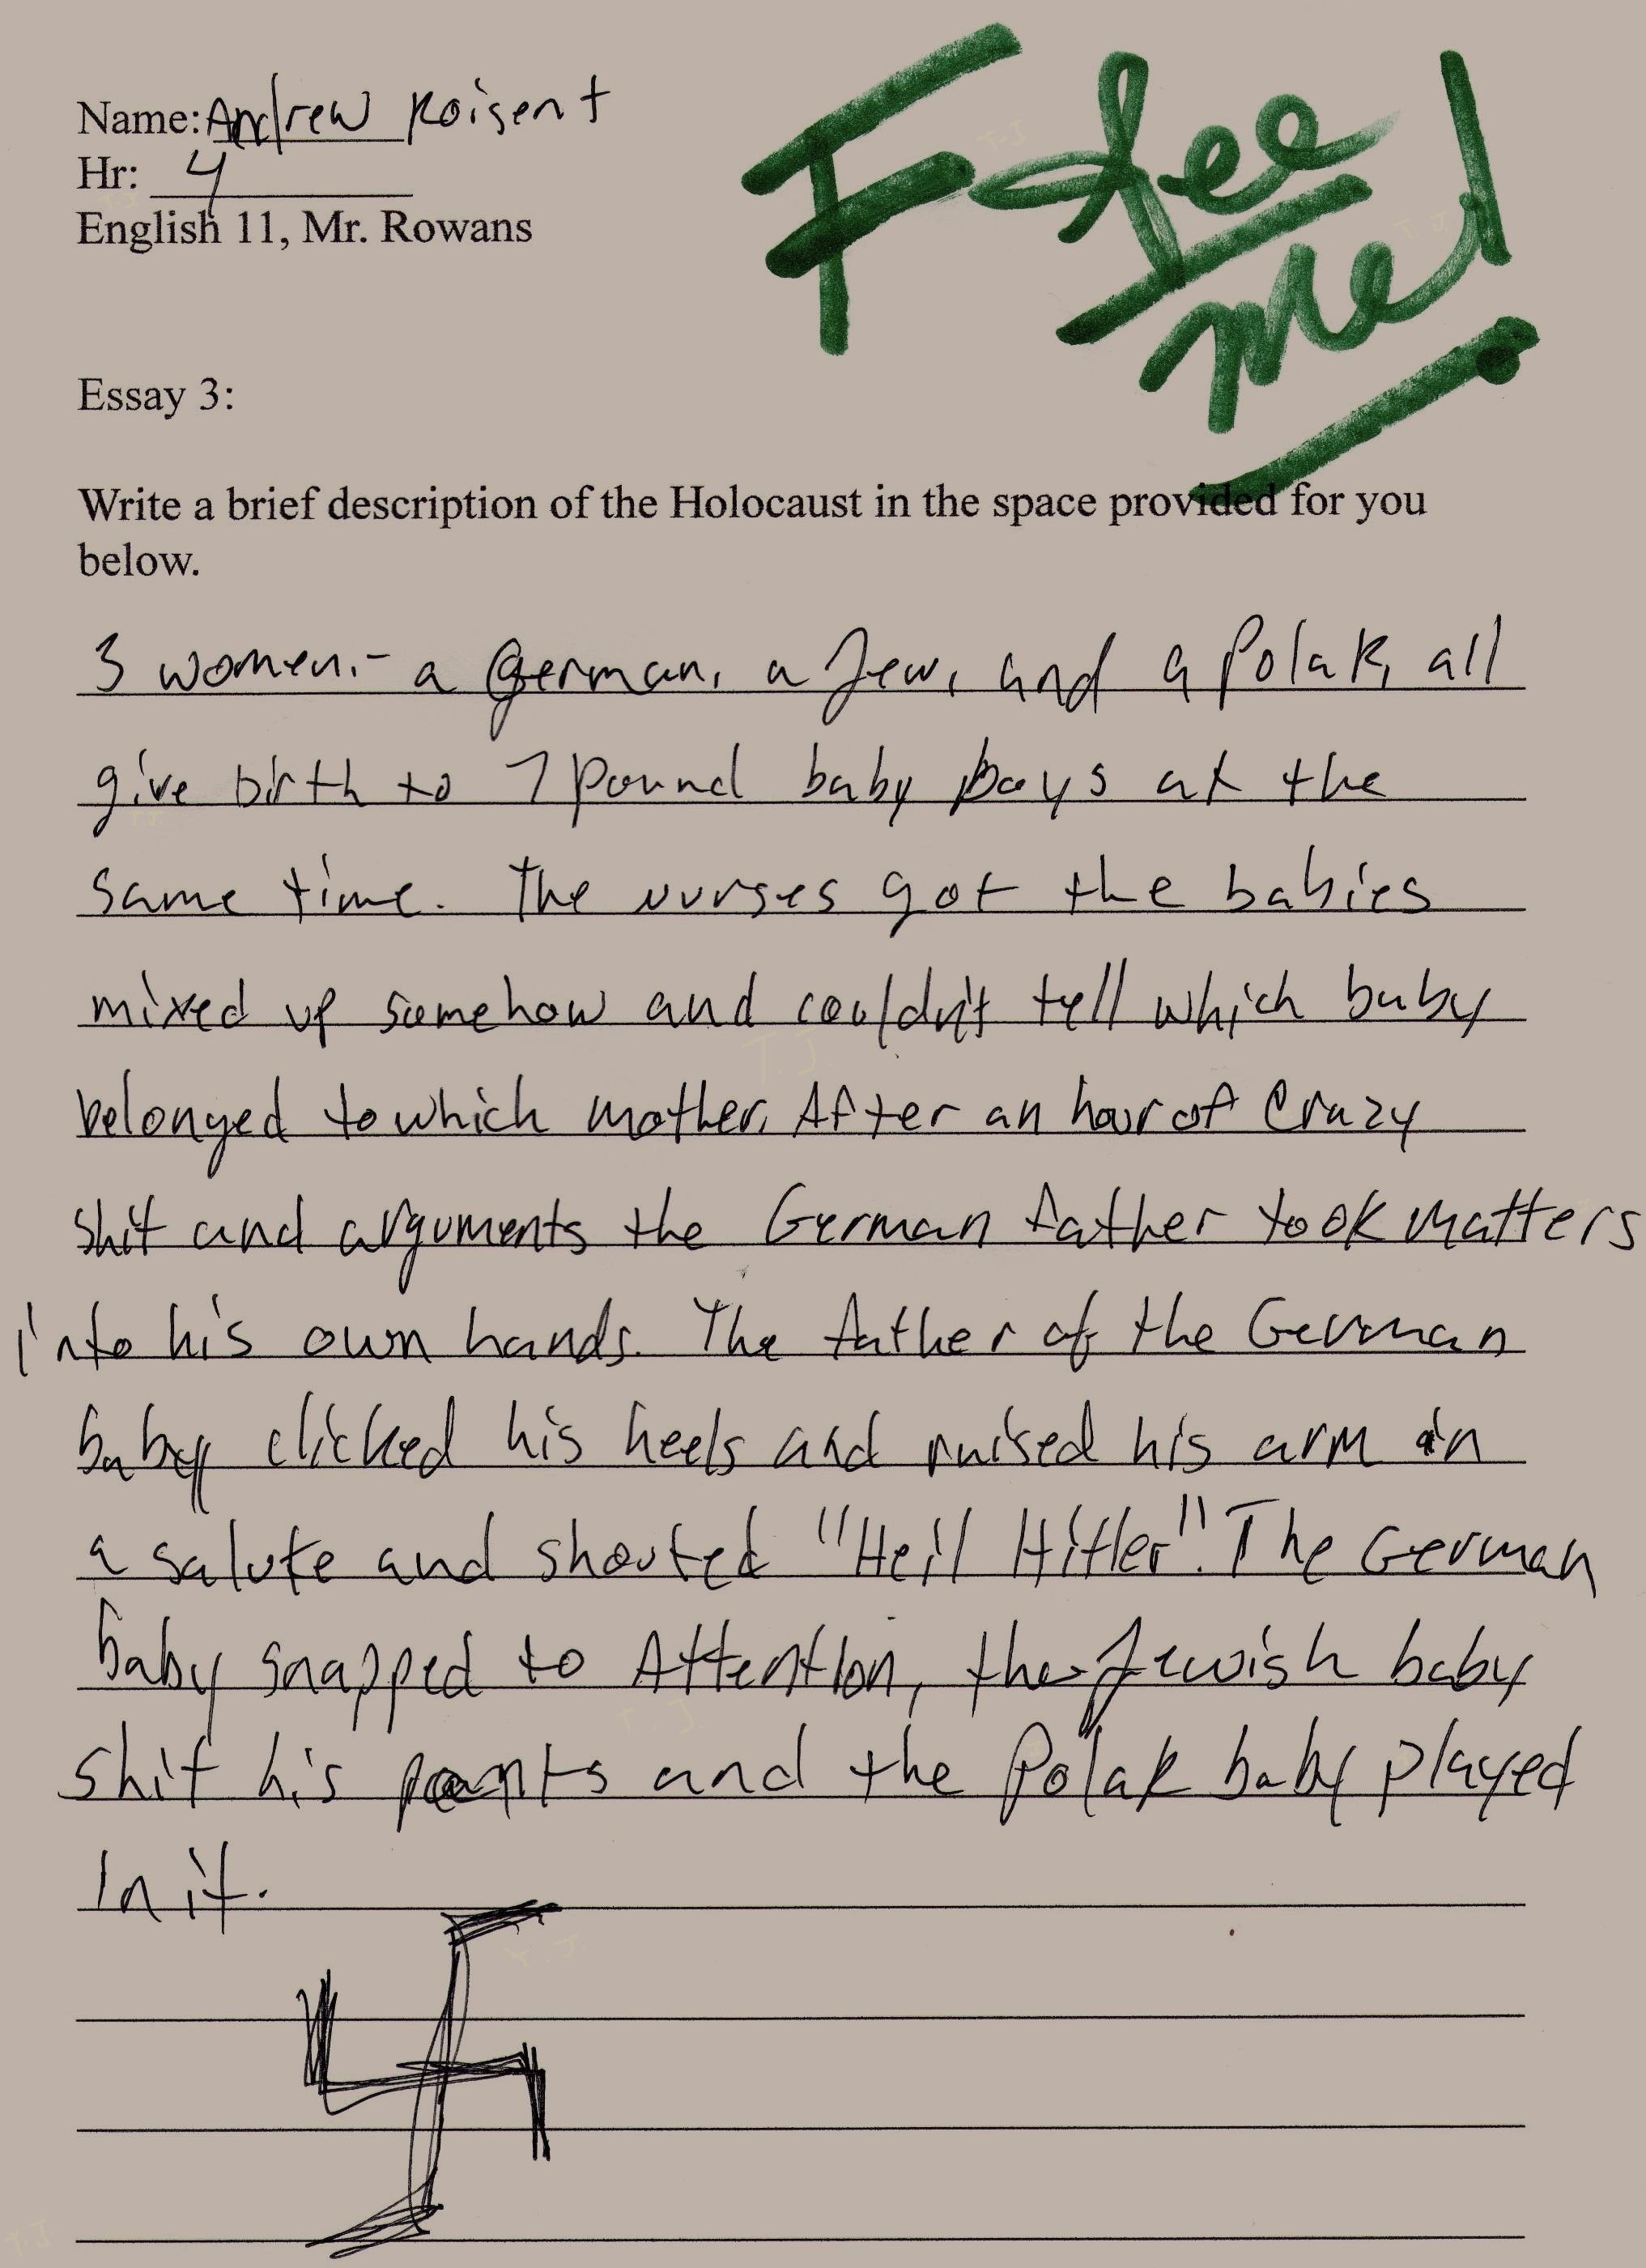 Name: Andrew Roisent
Hr: 4
English 11, Mr. Rowans
F- See
me!
Essay 3:
Write a brief description of the Holocaust in the space provided for you
below.
3 women.- a German, a Jew, and a Polak, all
give birth to 7 pound baby boys at the
same time. The nurses got the babies
mixed up somehow and couldn't tell which baby
belonged to which mother. After an hour of crazy
shit and arguments the German father took matters
into his own hands. The father of the German
baby clicked his heels and raised his arm in
a salute and shouted "Heil Hitler". The German
baby snapped to Attention, the Jewish baby
shit his pants and the Polak baby played
in it.
T.J.